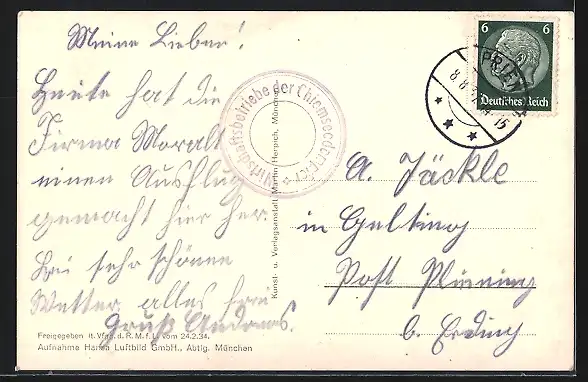 Meine Lieben!
Heute hat die
Firma Moralt
einen Ausflug
gemacht hier her.
Bei sehr schönen
Wetter alles frei
Gruß Andreas.
Wirtschaftsbetriebe der Chiemseedampfer
Kunst- u. Verlagsanstalt Martin Herpich, München
6 6
Deutsches Reich
PRIEN
8.8.
15
A. Jäckle
in Gelting
Post Pliening
b. Erding
Freigegeben lt. Vfrg. d. R. M. f. L. vom 24.2.34.
Aufnahme Hansa Luftbild GmbH., Abtlg. München